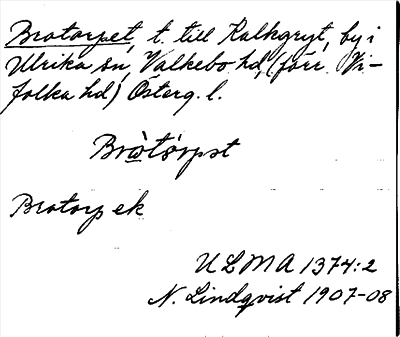 Brotorpet, t. till Kalkgryt, by i
Ulrika sn, Valkebo hd, (förr Vi-
folka hd) Österg. l.
Brò̱tórpst
Brotorp ek
ULMA 1374:2
N. Lindqvist 1907-08